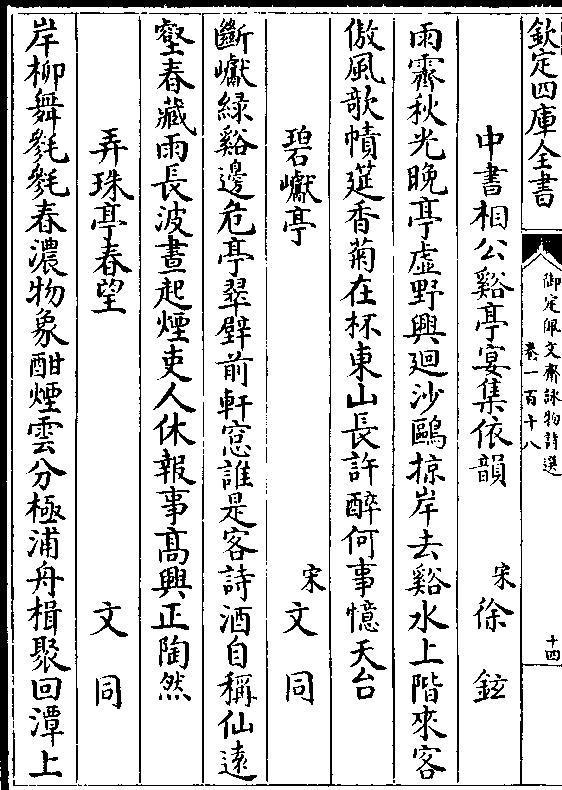 欽定四庫全書
御定佩文齋詠物詩選
卷一百十八
十四
中書相公谿亭宴集依韻　宋徐鉉
雨霽秋光晚亭虛野興廻沙鷗掠岸去谿水上階來客
傲風欹幘筵香菊在杯東山長許醉何事憶天台
碧巘亭　宋文同
斷巘綠谿邊危亭翠壁前軒窓誰是客詩酒自稱仙遠
壑春藏雨長波晝起煙吏人休報事高興正陶然
弄珠亭春望　文同
岸柳舞毿毿春濃物象酣煙雲分極浦舟楫聚回潭上